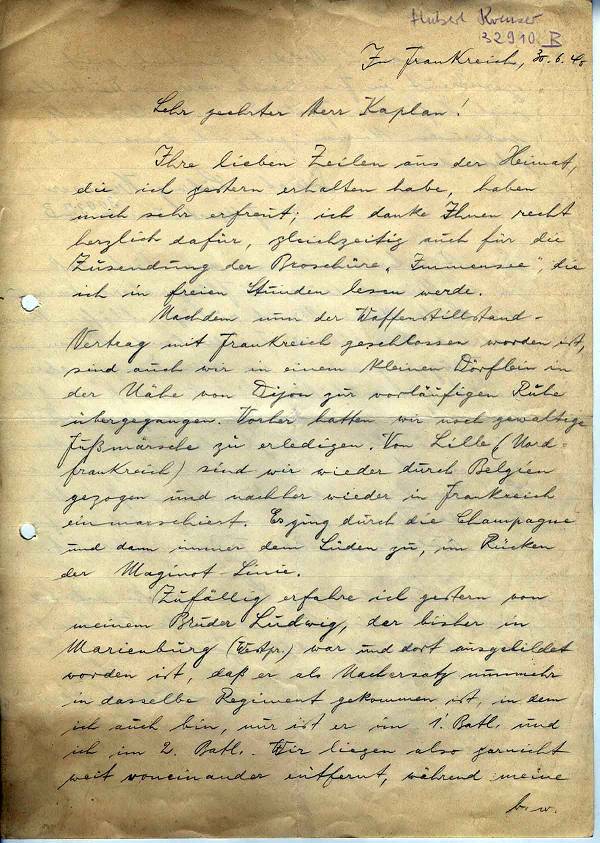 Hubert
32910 B
In Frankreich, 30.6.40
Sehr geehrter Herr Kaplan!
Ihre lieben Zeilen aus der Heimat,
die ich gestern erhalten habe, haben
mich sehr erfreut; ich danke Ihnen recht
herzlich dafür, gleichzeitig auch für die
Zusendung der Broschüre „Immensee“, die
ich in freien Stunden lesen werde.
Nachdem nun der Waffenstillstand-
Vertrag mit Frankreich geschlossen worden ist,
sind auch wir in einem kleinen Dörflein in
der Nähe von Dijon zur vorläufigen Ruhe
übergegangen. Vorher hatten wir noch gewaltige
Fußmärsche zu erledigen. Von Lille (Nord-
frankreich) sind wir wieder durch Belgien
gezogen und nachher wieder in Frankreich
einmarschiert. Es ging durch die Champagne
und dann immer dem Süden zu, im Rücken
der Maginot-Linie.
Zufällig erfahre ich gestern von
meinem Bruder Ludwig, der bisher in
Marienburg (Westpr.) war und dort ausgebildet
worden ist, daß er als Nachersatz nunmehr
in dasselbe Regiment gekommen ist, in dem
ich auch bin, nur ist er im 1. Batl. und
ich im 2. Batl. Wir liegen also garnicht
weit voneinander entfernt, während meine
b.w.